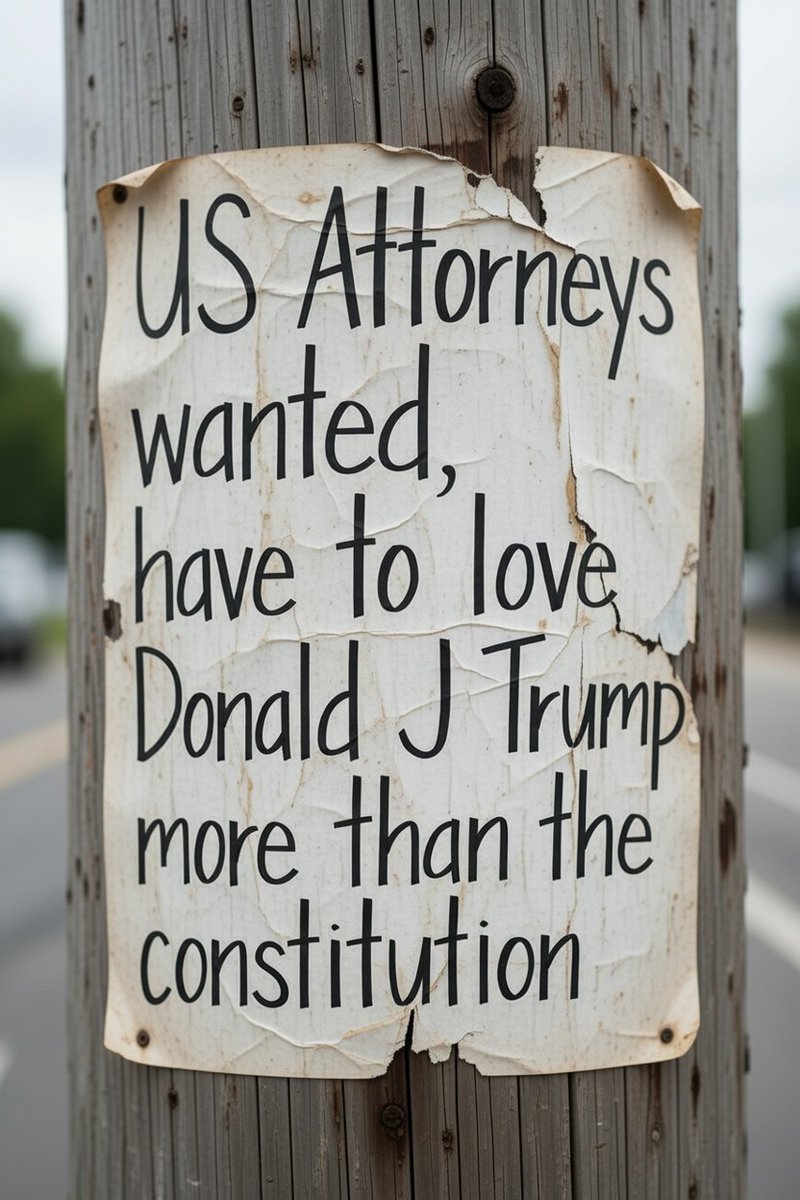 US Attorneys
wanted,
have to love
Donald J Trump
more than the
constitution